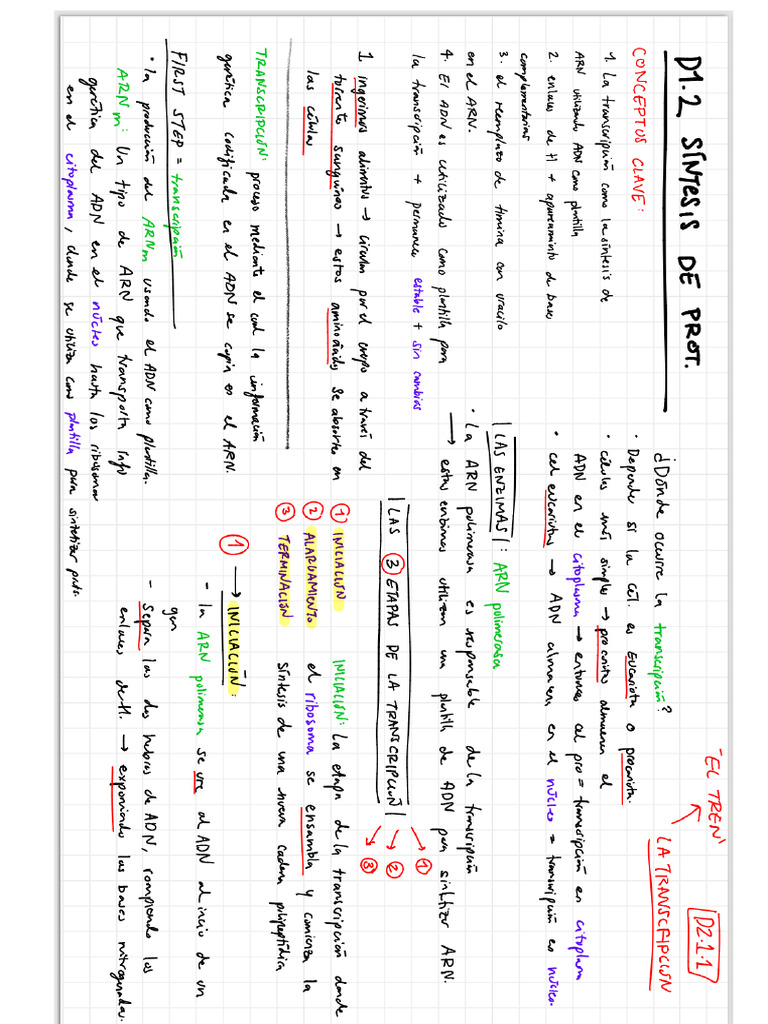 D1.2 SÍNTESIS DE PROT.
CONCEPTOS CLAVE:
1. La transcripción como la síntesis de
ARN utilizando ADN como plantilla
2. enlaces de H + apareamiento de bases
complementarias
3. el reemplazo de timina con uracilo
en el ARN.
4. El ADN es utilizado como plantilla para
la transcripción + permanece estable + sin cambios
1. ingerimos alimentos → circulan por el cuerpo a través del
torrente sanguíneo → estos aminoácidos se absorben en
las células
TRANSCRIPCIÓN: proceso mediante el cual la información
genética codificada en el ADN se copia en el ARN.
FIRST STEP = transcripción
• la producción del ARNm usando el ADN como plantilla.
ARNm: Un tipo de ARN que transporta info
genética del ADN en el núcleo hasta los ribosomas
en el citoplasma, donde se utiliza como plantilla para sintetizar prote.
D2.1.1
LA TRANSCRIPCIÓN
"EL TREN"
¿Dónde ocurre la transcripción?
• Depende si la cél. es eucariota o procariota.
• células más simples → procariotas almacenan el
ADN en el citoplasma → entonces al pro = transcripción en citoplasma
• cel eucariotas → ADN almacena en el núcleo = transcripción es núcleo.
|LAS ENZIMAS|: ARN polimerasa
• La ARN polimerasa es responsable de la transcripción
→ estas enzimas utilizan una plantilla de ADN para sintetizar ARN.
|LAS 3 ETAPAS DE LA TRANSCRIPCIÓN| → 1 → 2 → 3
1 INICIACIÓN
2 ALARGAMIENTO
3 TERMINACIÓN
INICIACIÓN: La etapa de la transcripción donde
el ribosoma se ensambla y comienza la
síntesis de una nueva cadena polipeptídica
1 → INICIACIÓN:
- la ARN polimerasa se une al ADN al inicio de un
gen
- Separa las dos hebras de ADN, rompiendo los
enlaces de H. → exponiendo las bases nitrogenadas.